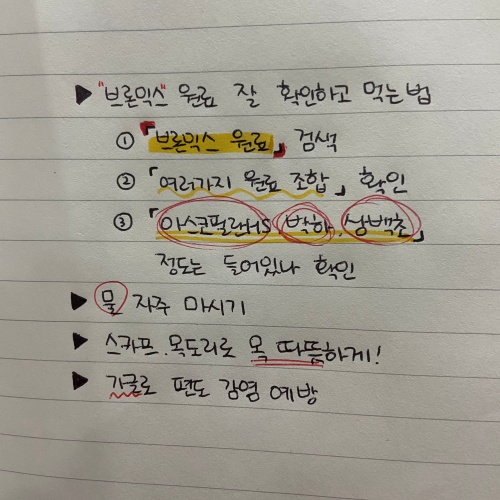 ▶ "브론익스" 원료 잘 확인하고 먹는법
① 「브론익스 원료」 검색
② 「여러가지 원료 조합」 확인
③ 「아스코필럼HS, 박하, 삼백초」
정도는 들어있나 확인
▶ 물 자주 마시기
▶ 스카프. 목도리로 목 따뜻하게!
▶ 가글로 편도 감염 예방